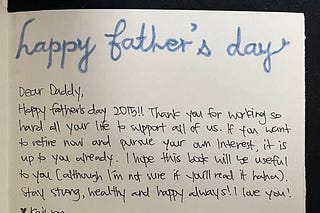 happy father's day
Dear Daddy,
Happy father's day 2015!! Thank you for working so
hard all your life to support all of us. If you want
to retire now and pursue your own interest, it is
up to you already. I hope this book will be useful
to you (although I'm not sure if you'll read it haha).
Stay strong, healthy and happy always!! I love you!
♥